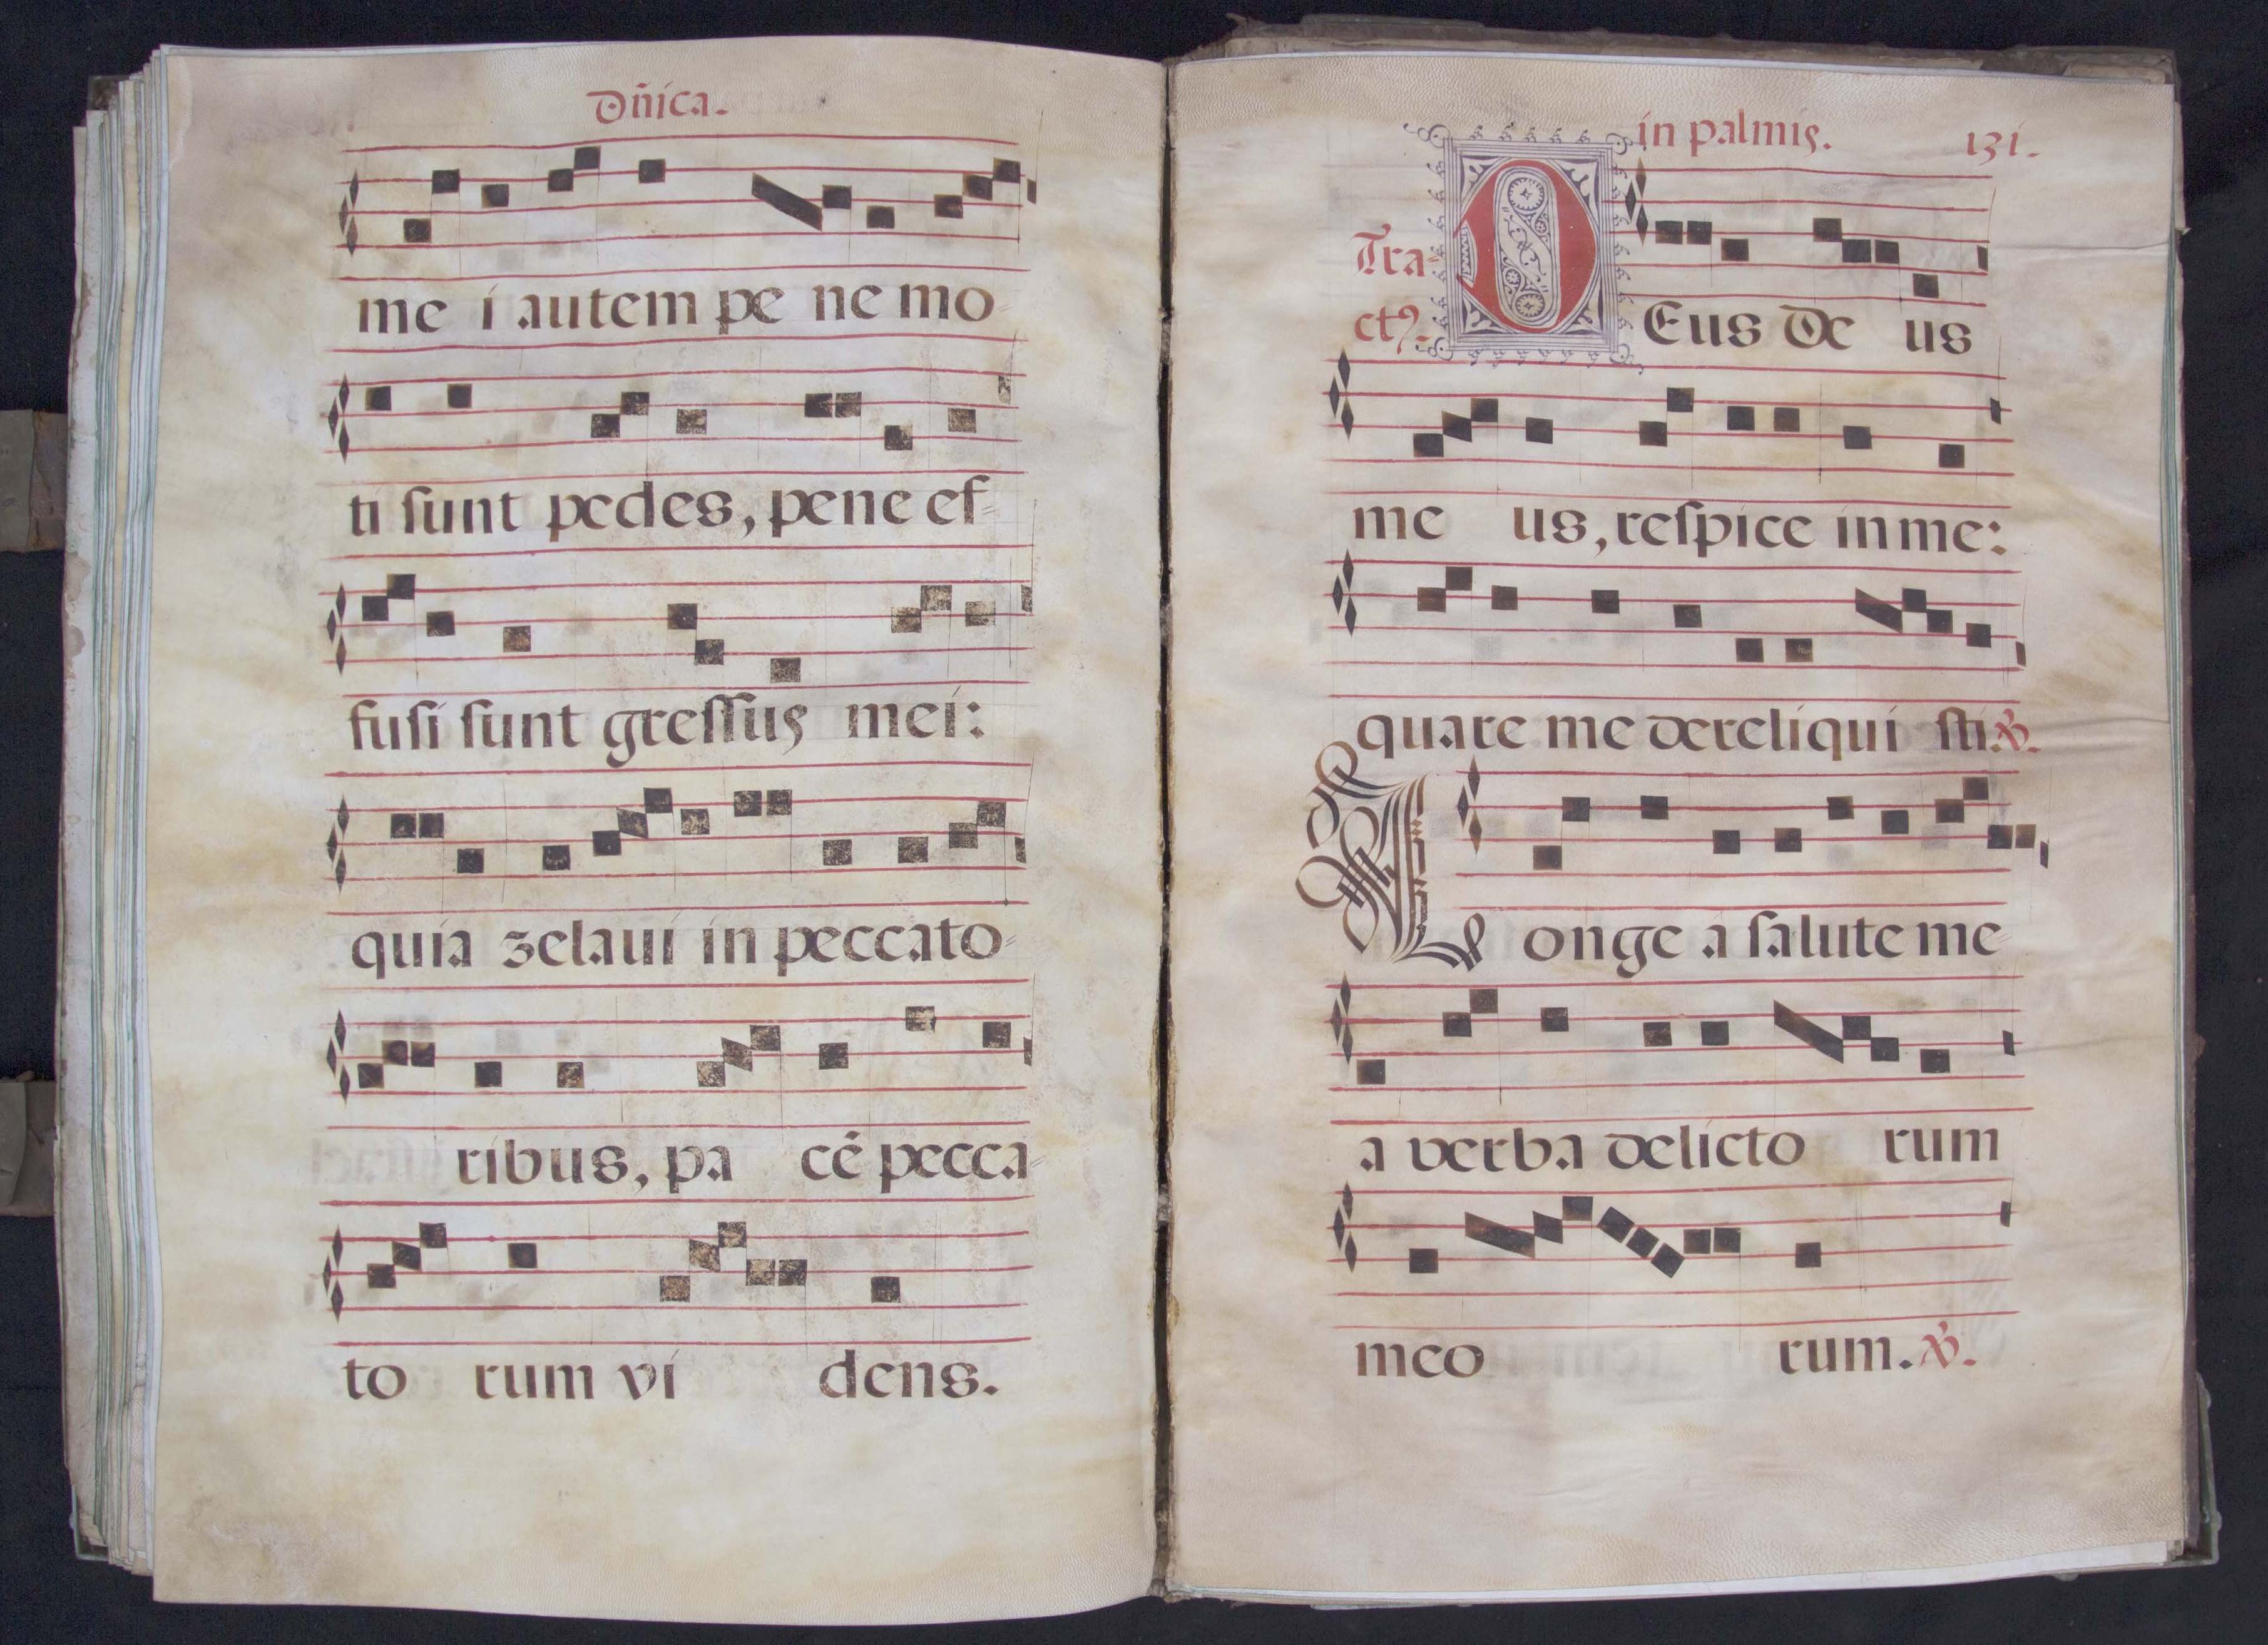 Dñica.
me i autem pe ne mo-
ti ſunt pedes, pene ef-
fuſi ſunt greſſus mei:
quia zelaui in peccato-
ribus, pa cẽ pecca-
to rum vi dens.
in palmis. 131.
Tra-
ctꝰ. DEus De us
me us, reſpice in me:
quare me dereliqui ſti. ℣.
Longe a ſalute me-
a verba delicto rum
meo rum. ℣.